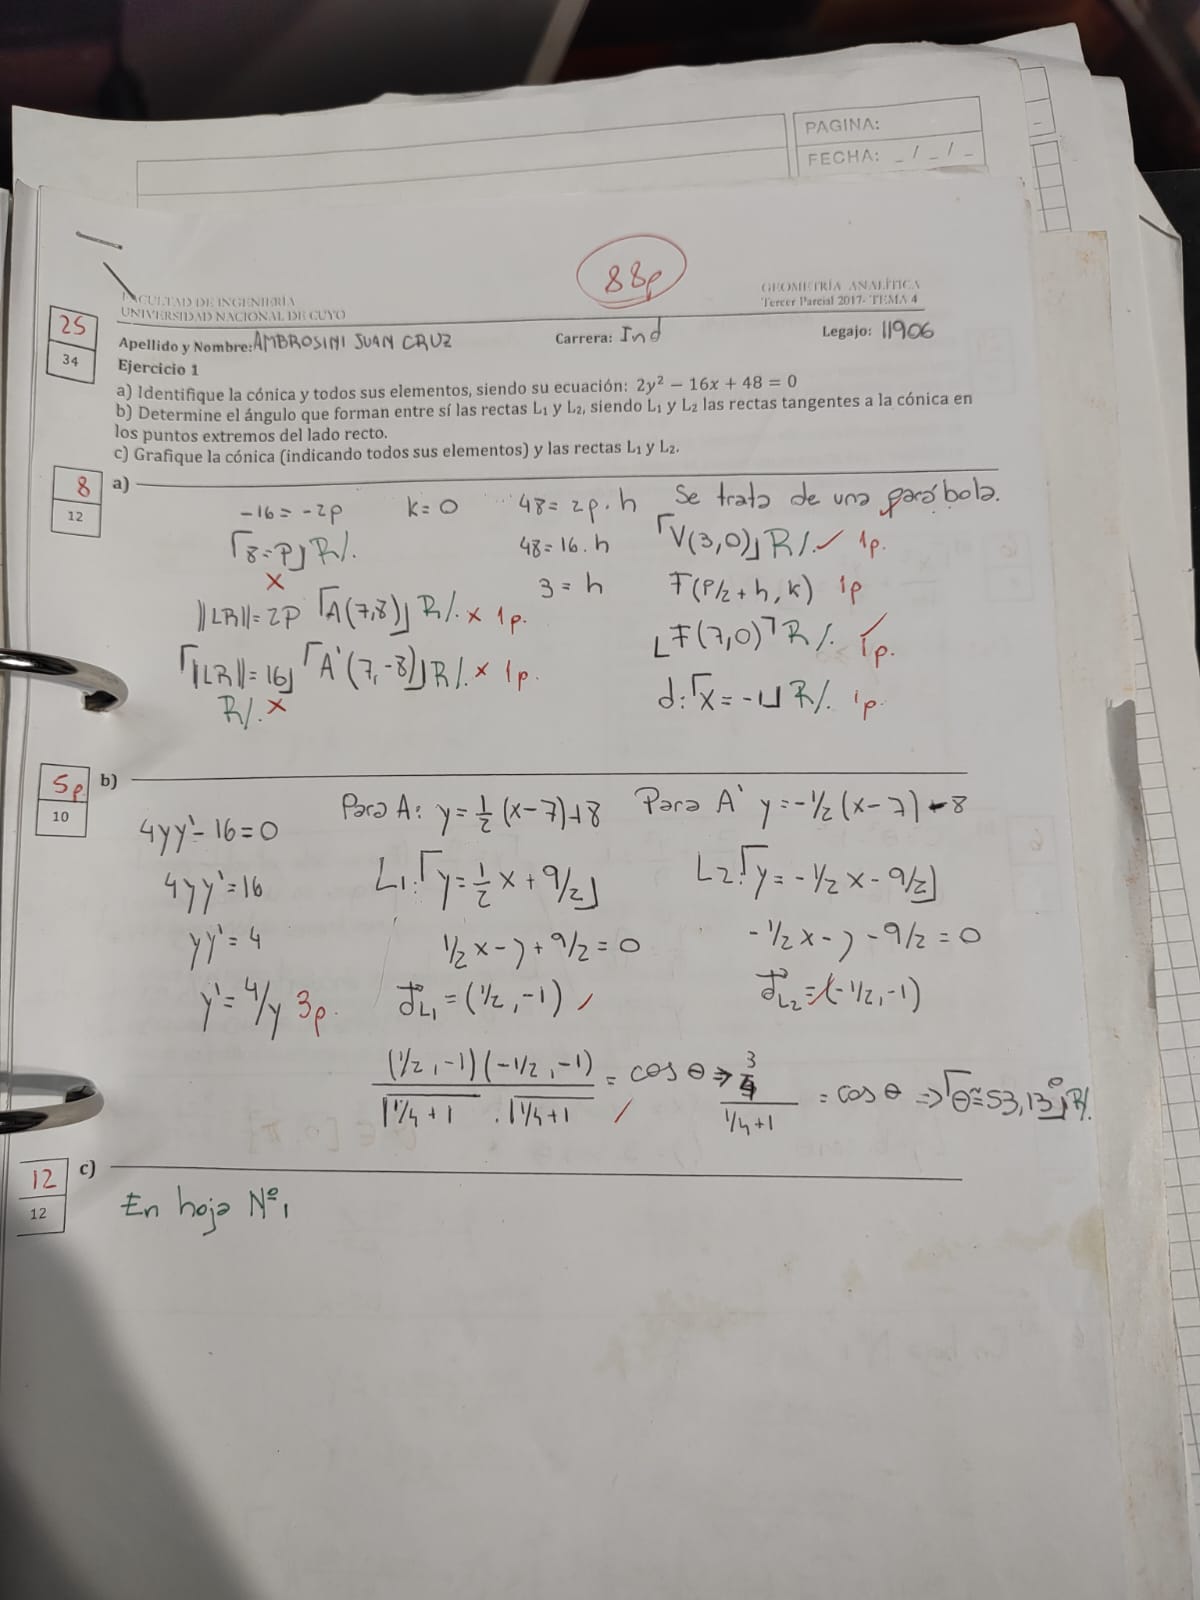 PAGINA:
FECHA: _ / _ / _
88p
FACULTAD DE INGENIERÍA
UNIVERSIDAD NACIONAL DE CUYO
GEOMETRÍA ANALÍTICA
Tercer Parcial 2017- TEMA 4
25
34
Apellido y Nombre: AMBROSINI JUAN CRUZ Carrera: Ind Legajo: 11906
Ejercicio 1
a) Identifique la cónica y todos sus elementos, siendo su ecuación: 2y² − 16x + 48 = 0
b) Determine el ángulo que forman entre sí las rectas L₁ y L₂, siendo L₁ y L₂ las rectas tangentes a la cónica en
los puntos extremos del lado recto.
c) Grafique la cónica (indicando todos sus elementos) y las rectas L₁ y L₂.
8
12
a)
-16 = -2p k = 0 48 = 2p . h Se trata de una parábola.
8 = P R/. 48 = 16 . h V(3,0) R/. ✓ 1p.
x 3 = h F(P/2 + h, k) 1p
||LR|| = 2P A(7,8) R/. x 1p. F(7,0) R/. ✓ 1p.
||LR|| = 16 A'(7,-8) R/. x 1p. d: x = -1 R/. 1p.
R/. x
5p
10
b)
4yy' - 16 = 0 Para A: y = 1/2 (x - 7) + 8 Para A' y = -1/2 (x - 7) - 8
4yy' = 16 L1: y = 1/2 x + 9/2 L2: y = -1/2 x - 9/2
yy' = 4 1/2 x - y + 9/2 = 0 -1/2 x - y - 9/2 = 0
y' = 4/y 3p. L1 = (1/2, -1) L2 = (-1/2, -1)
(1/2, -1)(-1/2, -1) / √1/4 + 1 . √1/4 + 1 = cos θ ⇒ 3/4 / 1/4 + 1 = cos θ ⇒ θ ≅ 53,13° R/.
12
12
c)
En hoja Nº1